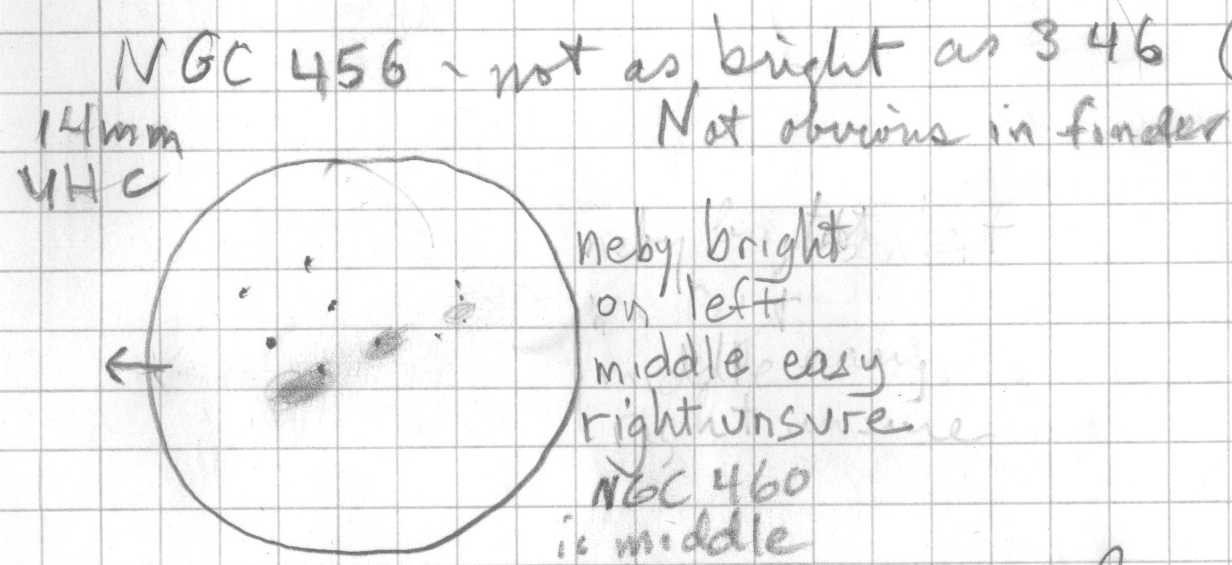 NGC 456 - not as bright as 346 (
Not obvious in finder
14mm
UHC
neby bright
on left
middle easy
right unsure
NGC 460
is middle